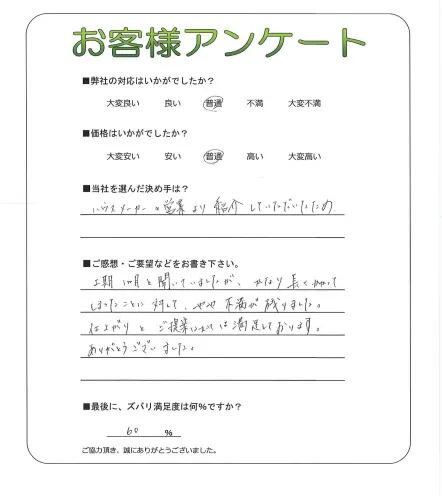 お客様アンケート
■弊社の対応はいかがでしたか?
大変良い 良い 普通 不満 大変不満
■価格はいかがでしたか?
大変安い 安い 普通 高い 大変高い
■当社を選んだ決め手は?
ハウスメーカーの営業より紹介していただいたため
■ご感想・ご要望などをお書き下さい。
工期1ヶ月と聞いていましたが、かなり長くかかって
しまったことに対して、やや不満が残りました。
仕上がりとご提案については満足しております。
ありがとうございました。
■最後に、ズバリ満足度は何%ですか?
60 %
ご協力頂き、誠にありがとうございました。